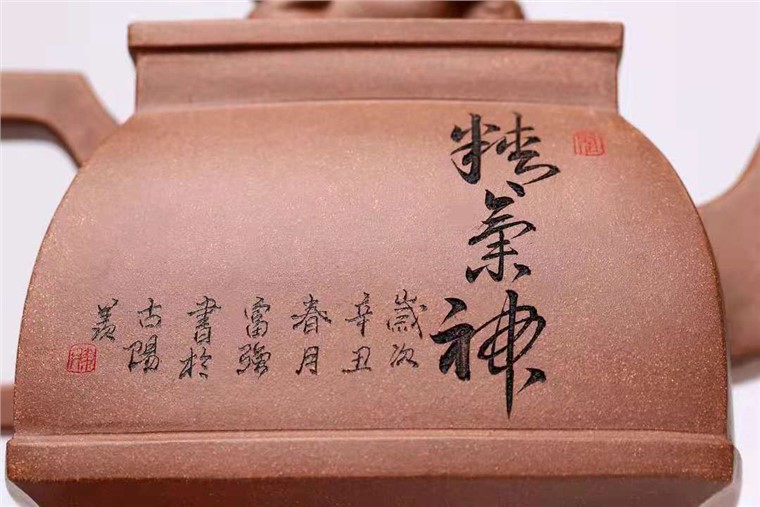 精氣神
歲次
辛丑
春月
富强
書於
古陽
羨